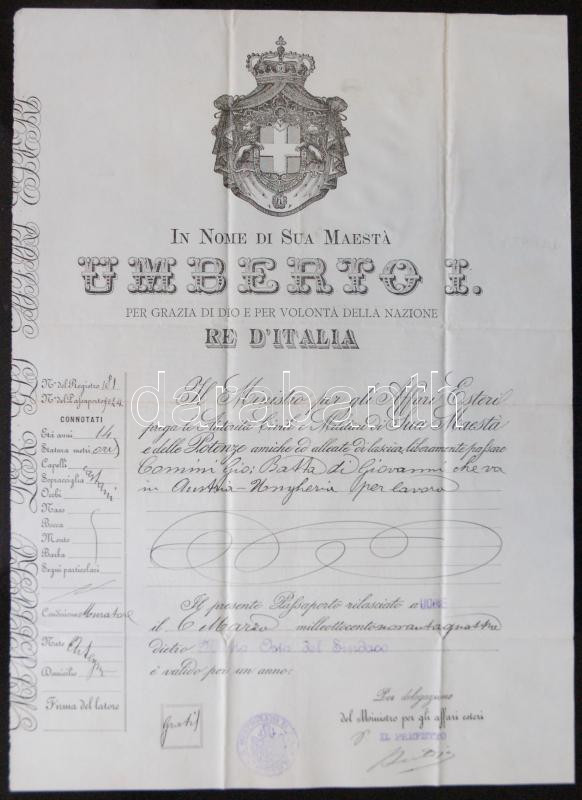 In Nome di Sua Maestà
UMBERTO I.
PER GRAZIA DI DIO E PER VOLONTÀ DELLA NAZIONE
RE D'ITALIA
darabanth
Nº del Registro
Nº del Passaporto
CONNOTATI
Età anni 14
Statura metri
Capelli
Sopracciglia
Occhi
Naso
Bocca
Mento
Barba
Segni particolari
Condizione Muratore
Nato
Domicilio
Firma del latore
Il Ministro per gli Affari Esteri
prega le Autorità Civili e Militari di Sua Maestà
e delle Potenze amiche ed alleate di lasciar liberamente passare
Comini Gio: Batta di Giovanni che va
in Austria-Ungheria per lavoro
Il presente Passaporto rilasciato a UDINE
il 6 Marzo milleottocentonovantaquattro
dietro Del Sindaco
è valido per un anno:
Gratis
Per delegazione
del Ministro per gli affari esteri
IL PREFETTO